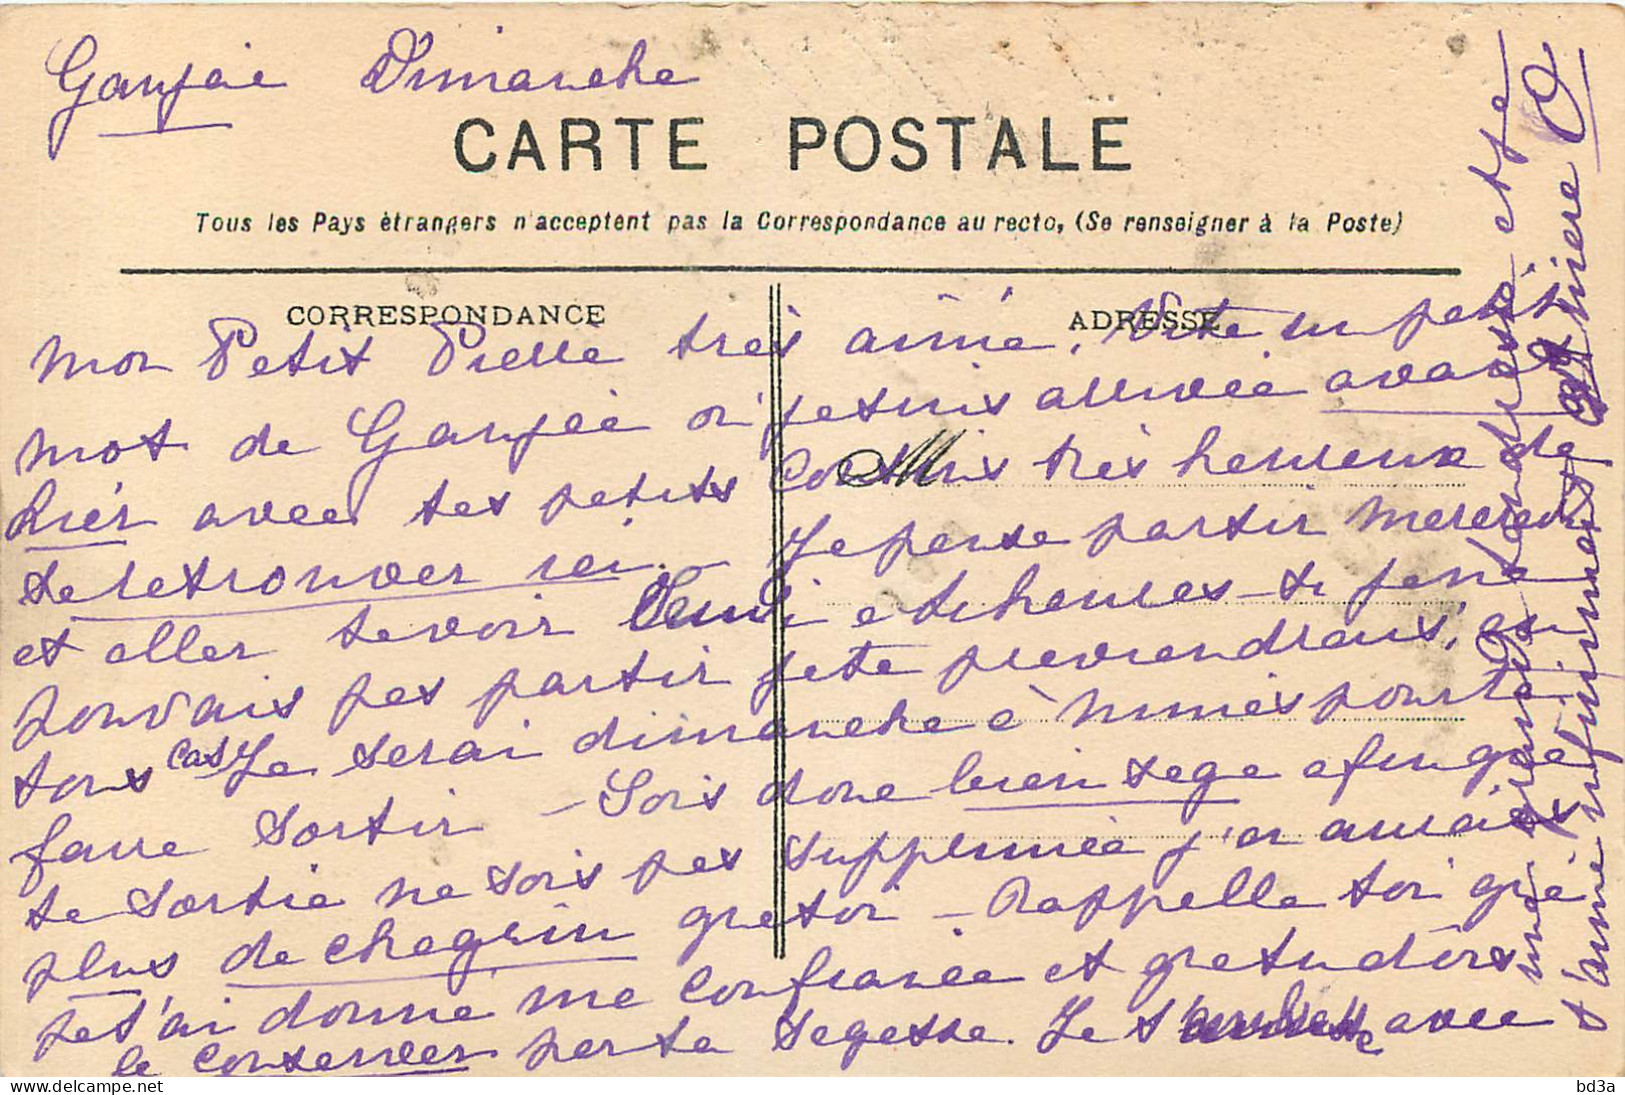 Ganjac Dimanche
CARTE POSTALE
Tous les Pays étrangers n'acceptent pas la Correspondance au recto, (Se renseigner à la Poste)
CORRESPONDANCE
ADRESSE
mon Petit Pierre très aimé, Vite un petit
mot de Ganjac où je suis arrivée avant
hier avec tes petits Cousins très heureux de
te retrouver ici. – Je pense partir mercredi
et aller te voir Jeudi à heures – si je ne
pouvais pas partir je te préviendrais, en
tous cas Je serai dimanche à Nimes pour te
faire sortir – Sois donc bien sage afin que
ta sortie ne sois pas supprimée j'en aurais
plus de chagrin que toi – Rappelle toi que
je t'ai donné ma confiance et que tu dois
la conserver par ta sagesse. Je t' avec
une grande tendresse et je
t'aime infiniment ta gd mère
bd3a